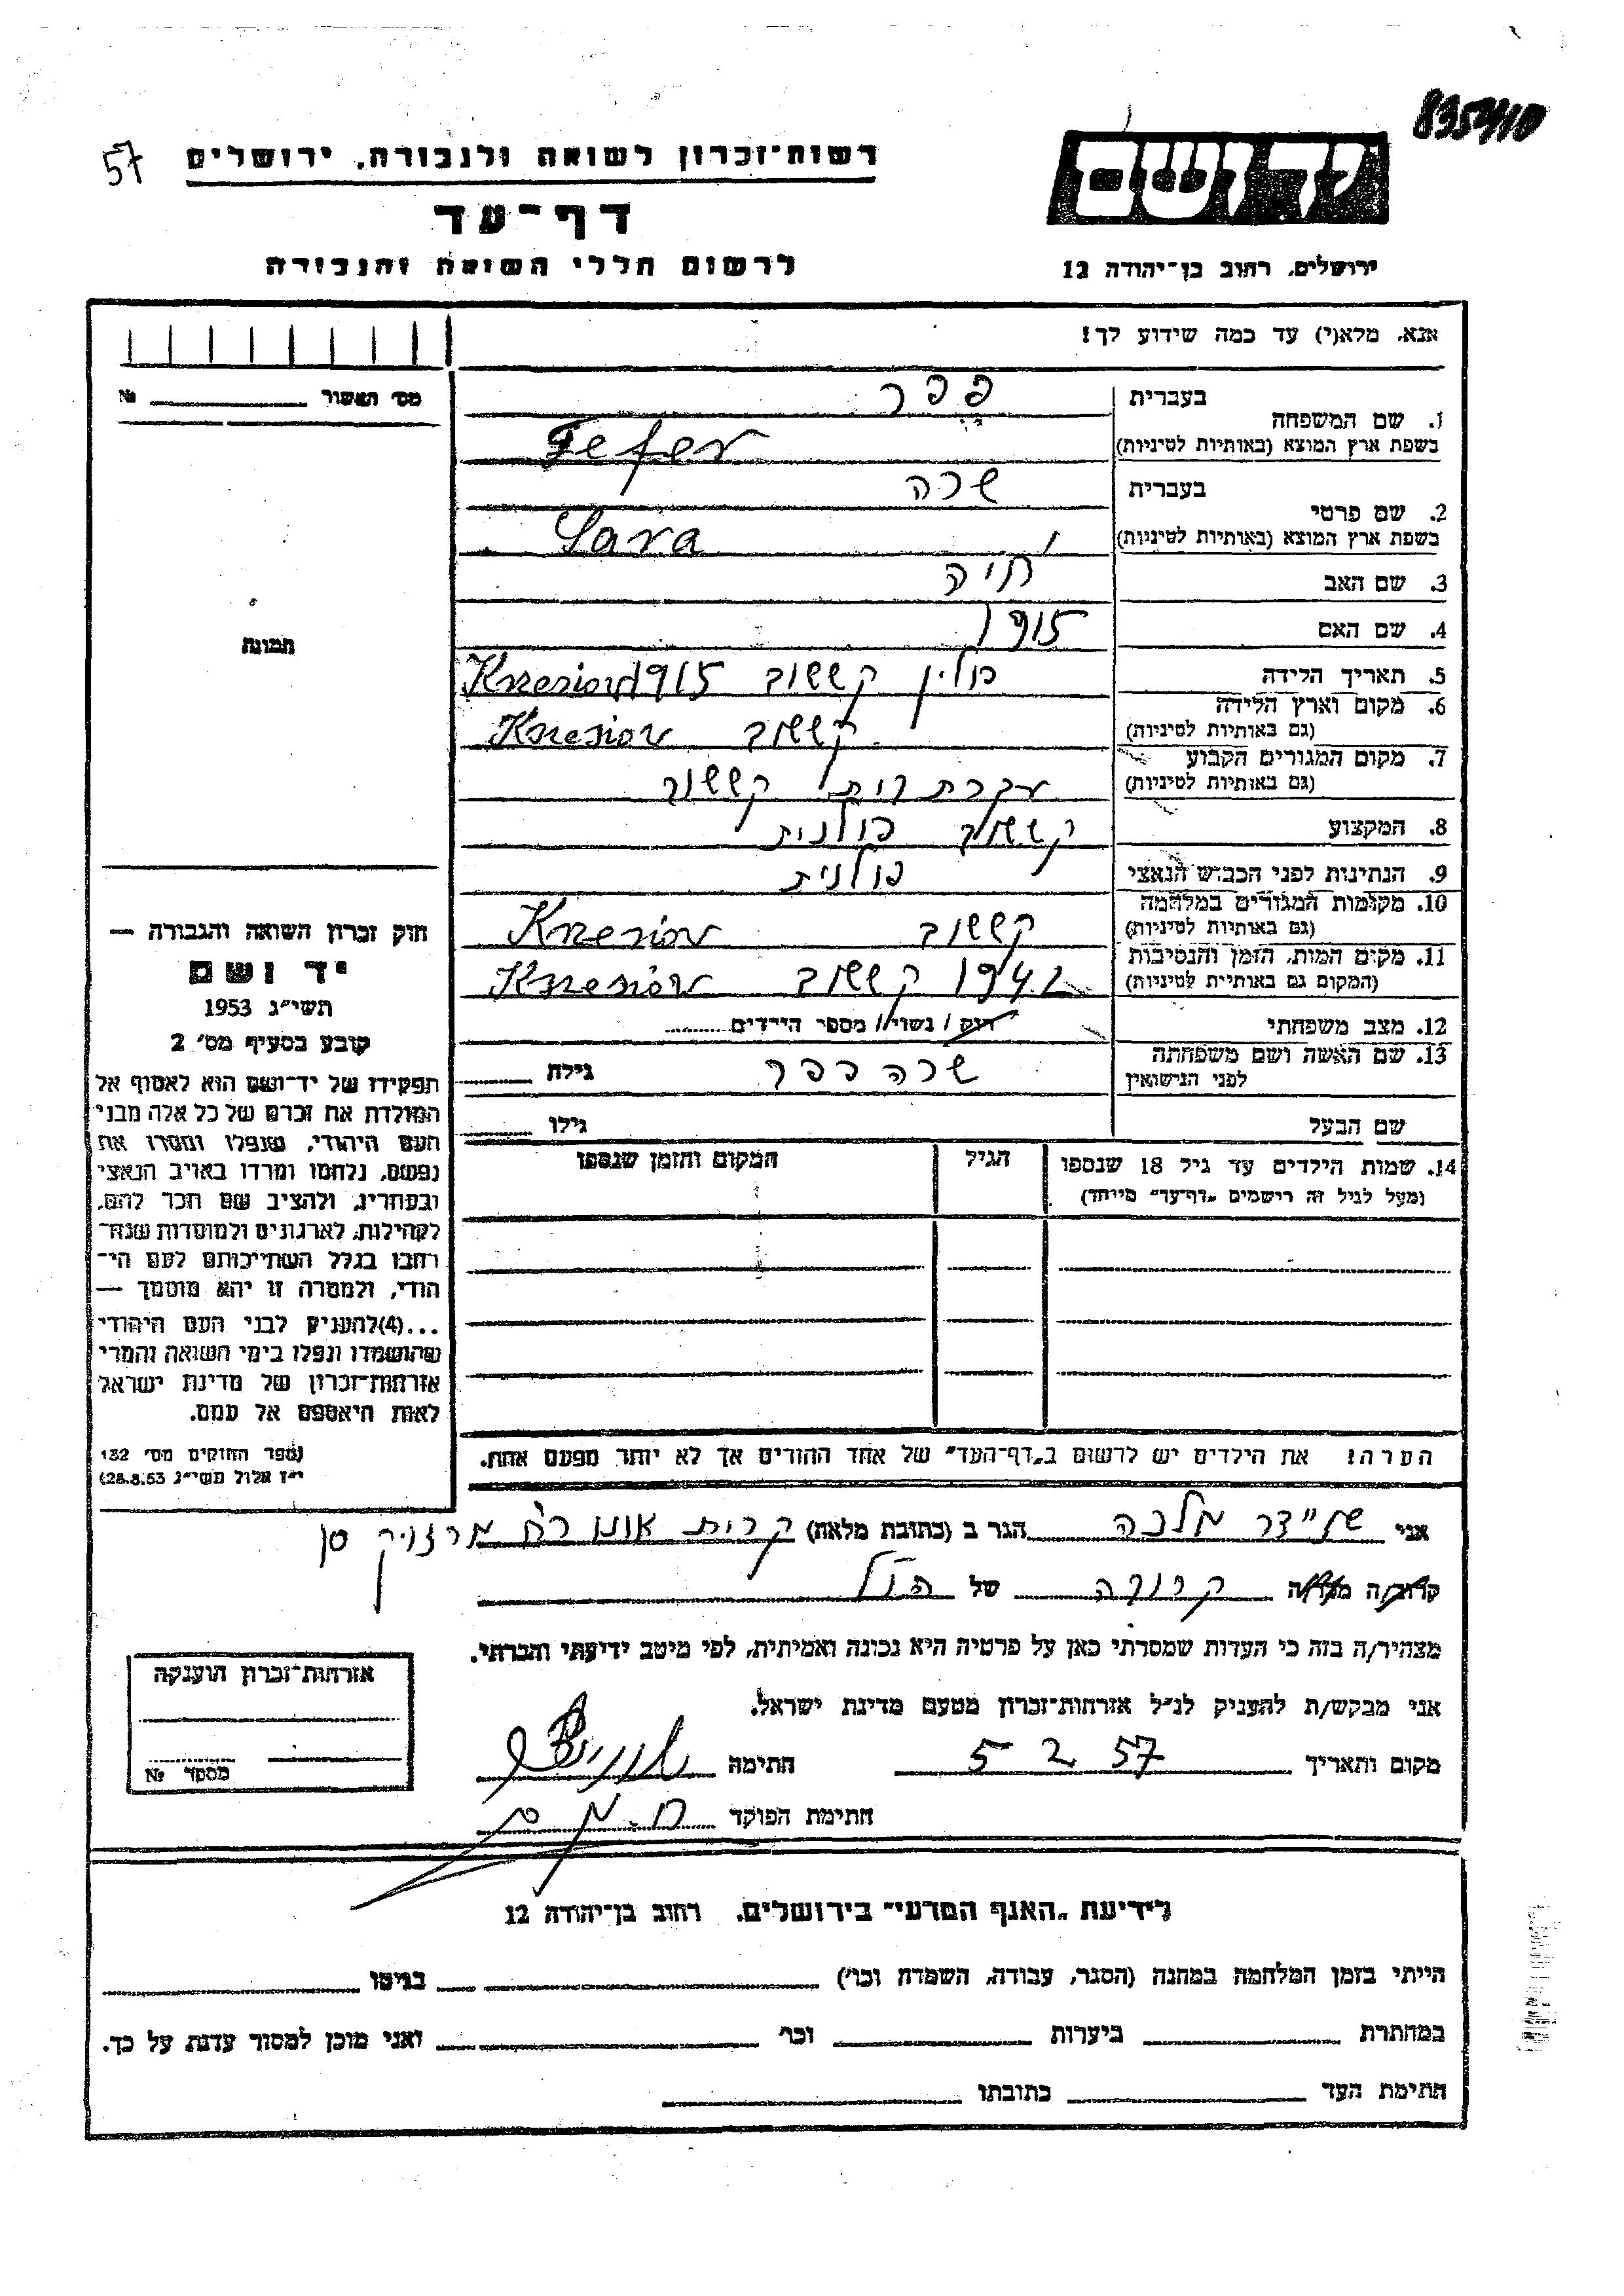 835410
57
רשות־זכרון לשואה ולגבורה, ירושלים
יד ושם
דף־עד
לרשום חללי השואה והגבורה
ירושלים, רחוב בן־יהודה 12
אנא, מלא(י) עד כמה שידוע לך!
מס' האשור № 
1. שם המשפחה
בעברית פפר
בשפת ארץ המוצא (באותיות לטיניות) Fefer
2. שם פרטי
בעברית שרה
בשפת ארץ המוצא (באותיות לטיניות) Sara
3. שם האב חיה
4. שם האם 1915
תמונה
5. תאריך הלידה פולין קששוב 1915
6. מקום וארץ הלידה
(גם באותיות לטיניות) קששוב
7. מקום המגורים הקבוע
(גם באותיות לטיניות) עקרת בית קששוב
8. המקצוע קששוב פולנית
9. הנתינות לפני הכבוש הנאצי פולנית
10. מקומות המגורים במלחמה
(גם באותיות לטיניות) קששוב
11. מקום המות, הזמן והנסיבות
(המקום גם באותיות לטיניות) 1942 קששוב
12. מצב משפחתי רווק / נשוי / מספר הילדים
13. שם האשה ושם משפחתה
לפני הנישואין שרה פפר גילה
שם הבעל גילו
14. שמות הילדים עד גיל 18 שנספו
(מעל לגיל זה רישמים "דף־עד" מיוחד)
הגיל
המקום והזמן שנספו
חוק זכרון השואה והגבורה —
יד ושם
תשי"ג 1953
קובע בסעיף מס' 2
תפקידו של יד־ושם הוא לאסוף אל
המולדת את זכרם של כל אלה מבני
העם היהודי, שנפלו ומסרו את
נפשם, נלחמו ומרדו באויב הנאצי
ובעוזריו, ולהציב שם וזכר להם,
לקהילות, לארגונים ולמוסדות שנח־
רבו בגלל השתייכותם לעם הי־
הודי, ולמטרה זו יהא מוסמך —
...(4)להעניק לבני העם היהודי
שהושמדו ונפלו בימי השואה והמרי
אזרחות־זכרון של מדינת ישראל
לאות היאספם אל עמם.
(ספר החוקים מס' 132
י"ז אלול תשי"ג 28.8.53)
הערה! את הילדים יש לרשום ב"דף־העד" של אחד ההורים אך לא יותר מפעם אחת.
אני מלכה הגר ב (כתובת מלאה) קרית אונו
קרוב/ה מכר/ה קרובה של הנ"ל
מצהיר/ה בזה כי העדות שמסרתי כאן על פרטיה היא נכונה ואמיתית, לפי מיטב ידיעתי והכרתי.
אני מבקש/ת להעניק לנ"ל אזרחות־זכרון מטעם מדינת ישראל.
מקום ותאריך 5 2 57 חתימה
חתימת הפוקד
אזרחות־זכרון הוענקה
מספר №
לידיעת "האגף המדעי" בירושלים, רחוב בן־יהודה 12
הייתי בזמן המלחמה במחנה (הסגר, עבודה, השמדה וכו') בגיטו
במחתרת ביערות וכו' ואני מוכן למסור עדות על כך.
חתימת העד כתובתו